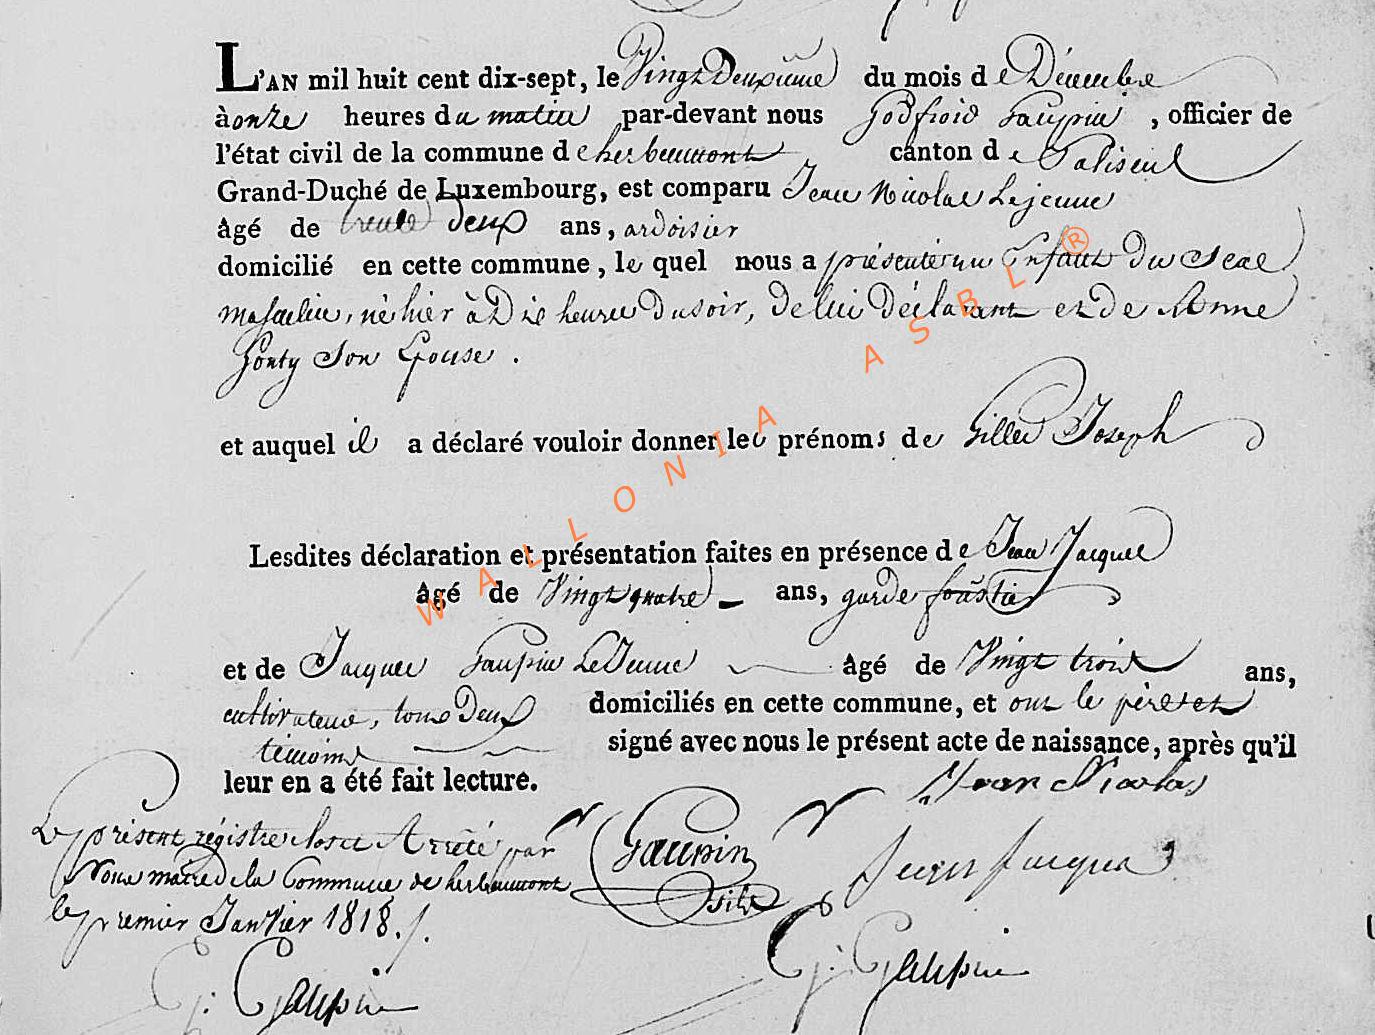 L'AN mil huit cent dix-sept, le Vingt Deuxieme du mois de Décembre
à onze heures du matin par-devant nous Godfroid Gaupin, officier de
l'état civil de la commune de herbeumont canton de Paliseul
Grand-Duché de Luxembourg, est comparu Jean Nicolas Lejeune
âgé de trente deux ans, ardoisier
domicilié en cette commune, le quel nous a présenté un Enfant Du Sexe
masculin, né hier à Dix heures Du soir, De lui Déclarant et De Anne
Gonty Son Epouse.
et auquel il a déclaré vouloir donner les prénoms de Gilles Joseph
Lesdites déclaration et présentation faites en présence de Jean Jacques
âgé de Vingt quatre ans, garde forêstier
et de Jacques Gaupin LeJeune âgé de Vingt trois ans,
cultivateur, tous Deux domiciliés en cette commune, et ont le père et
témoins signé avec nous le présent acte de naissance, après qu'il
leur en a été fait lecture.
Jean Nicolas
Le présent régistre clos et Arrêté par
Nous maire de la Commune de herbeumont
le premier Janvier 1818.
Gaupin
fils
Jean Jacques
G: Gaupin
G: Gaupin
WALLONIA ASBL ®